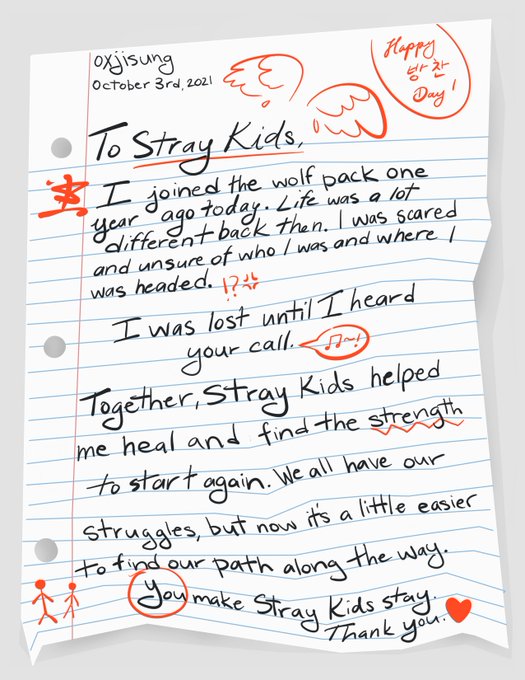 oxjisung
October 3rd, 2021
Happy
방찬
Day!
To Stray Kids,
I joined the wolf pack one
year ago today. Life was a lot
different back then. I was scared
and unsure of who I was and where I
was headed. !?
I was lost until I heard
your call. ♫~!
Together, Stray Kids helped
me heal and find the strength
to start again. We all have our
struggles, but now it's a little easier
to find our path along the way.
You make Stray Kids stay.
Thank you.